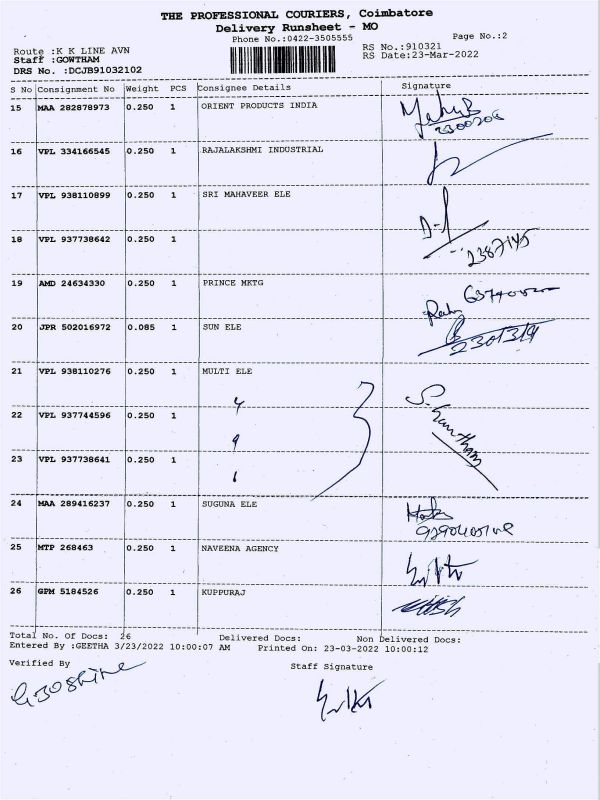 THE PROFESSIONAL COURIERS, Coimbatore
Delivery Runsheet - MO
Phone No.:0422-3505555
Page No.:2
Route :K K LINE AVN
RS No.:910321
Staff :GOWTHAM
RS Date:23-Mar-2022
DRS No. :DCJB91032102
S No Consignment No Weight PCS Consignee Details Signature
15 MAA 282878973 0.250 1 ORIENT PRODUCTS INDIA
16 VPL 334166545 0.250 1 RAJALAKSHMI INDUSTRIAL
17 VPL 938110899 0.250 1 SRI MAHAVEER ELE
18 VPL 937738642 0.250 1
2387145
19 AMD 24634330 0.250 1 PRINCE MKTG
20 JPR 502016972 0.085 1 SUN ELE
21 VPL 938110276 0.250 1 MULTI ELE
22 VPL 937744596 0.250 1
23 VPL 937738641 0.250 1
24 MAA 289416237 0.250 1 SUGUNA ELE
25 MTP 268463 0.250 1 NAVEENA AGENCY
26 GPM 5184526 0.250 1 KUPPURAJ
Total No. Of Docs: 26 Delivered Docs: Non Delivered Docs:
Entered By :GEETHA 3/23/2022 10:00:07 AM Printed On: 23-03-2022 10:00:12
Verified By
Staff Signature